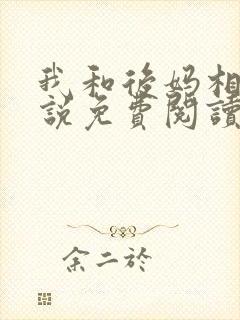 我和後妈相
說免費閱讀
余二於